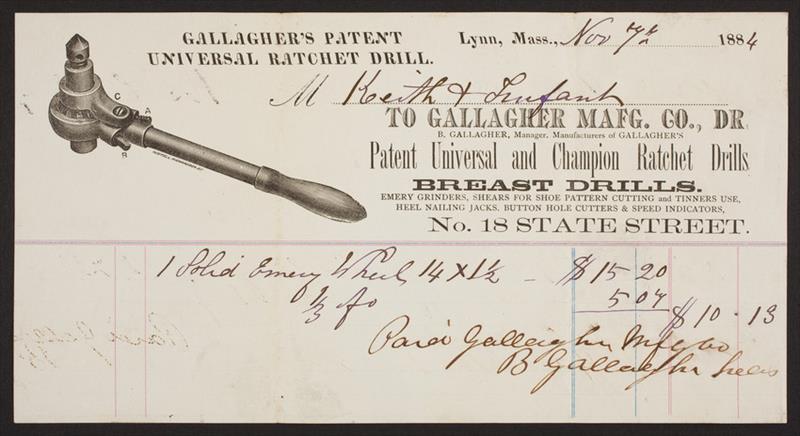 GALLAGHER'S PATENT
UNIVERSAL RATCHET DRILL.
Lynn, Mass., Nov 7th 1884
M Keith &
TO GALLAGHER MAFG. CO., DR.
B. GALLAGHER, Manager. Manufacturers of GALLAGHER'S
Patent Universal and Champion Ratchet Drills
BREAST DRILLS.
EMERY GRINDERS, SHEARS FOR SHOE PATTERN CUTTING and TINNERS USE,
HEEL NAILING JACKS. BUTTON HOLE CUTTERS & SPEED INDICATORS,
No. 18 STATE STREET.
C
A
B
1 Solid Emery Wheel 14 X 1½ - $15 20
1/3 5 07 $10.13
Paid Gallagher Mfg Co
B Gallagher